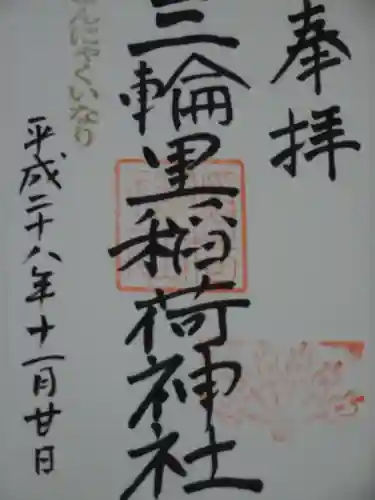 奉拝
三輪里稲荷神社
平成二十八年十一月廿日
んにゃくいなり